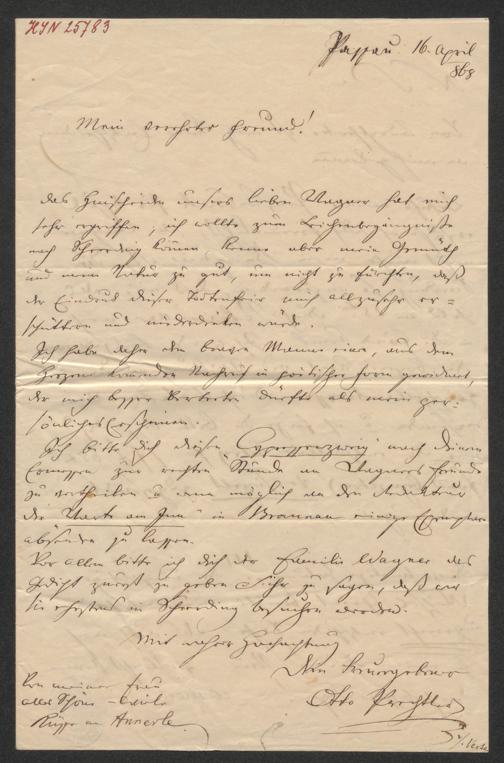 HIN 25783
Passau 16. April
868
Mein verehrter Freund!
das Hinscheiden unsers lieben Wagner hat mich
sehr ergriffen, ich wollte zum Leichenbegängniße
nach Schaerding kommen kenne aber mein Gemüth
und meine Natur zu gut, um nicht zu fürchten, daß
der Eindruck dieser Todtenfeier mich allzusehr er=
schüttern und niederdrücken würde.
Ich habe daher dem braven Manne einen, aus dem
Herzen kommenden Nachruf in poetischer Form gewidmet,
der mich besser vertreten dürfte als mein per=
sönliches Erscheinen.
Ich bitte dich diesen Cypressenzweig nach deinem
Ermessen zur rechten Stunde an Wagners Freunde
zu vertheilen u. wenn möglich an den Redakteur
der "Warte am Inn" in Braunau einige Exemplare
absenden zu lassen.
Vor allem bitte ich dich der Familie Wagner das
Gedicht zuerst zu geben u. ihr zu sagen, daß wir
sie ehestens in Schaerding besuchen werden.
Mit wahrer Hochachtung
Dein
Otto Prechtler
Von meiner Frau
alles Schöne
Küsse an Annerle